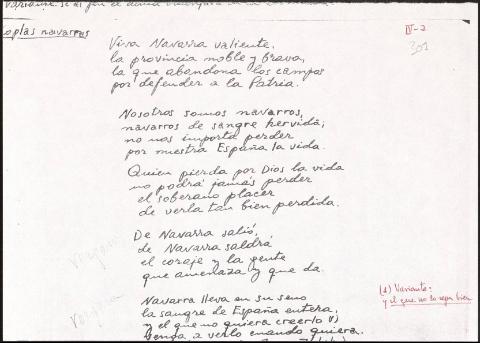 Coplas navarras
IV-2
301
Viva Navarra valiente,
la provincia noble y brava,
la que abandona los campos
por defender a la Patria.
Nosotros somos navarros,
navarros de sangre hervida;
no nos importa perder
por nuestra España la vida.
Quien pierda por Dios la vida
no podrá jamás perder
el soberano placer
de verla tan bien perdida.
De Navarra salió,
de Navarra saldrá
el coraje y la gente
que amenaza y que da.
Navarra lleva en su seno
la sangre de España entera,
y el que no quiera creerlo
venga a verlo cuando quiera.
(1) Variante:
y el que no lo sepa bien